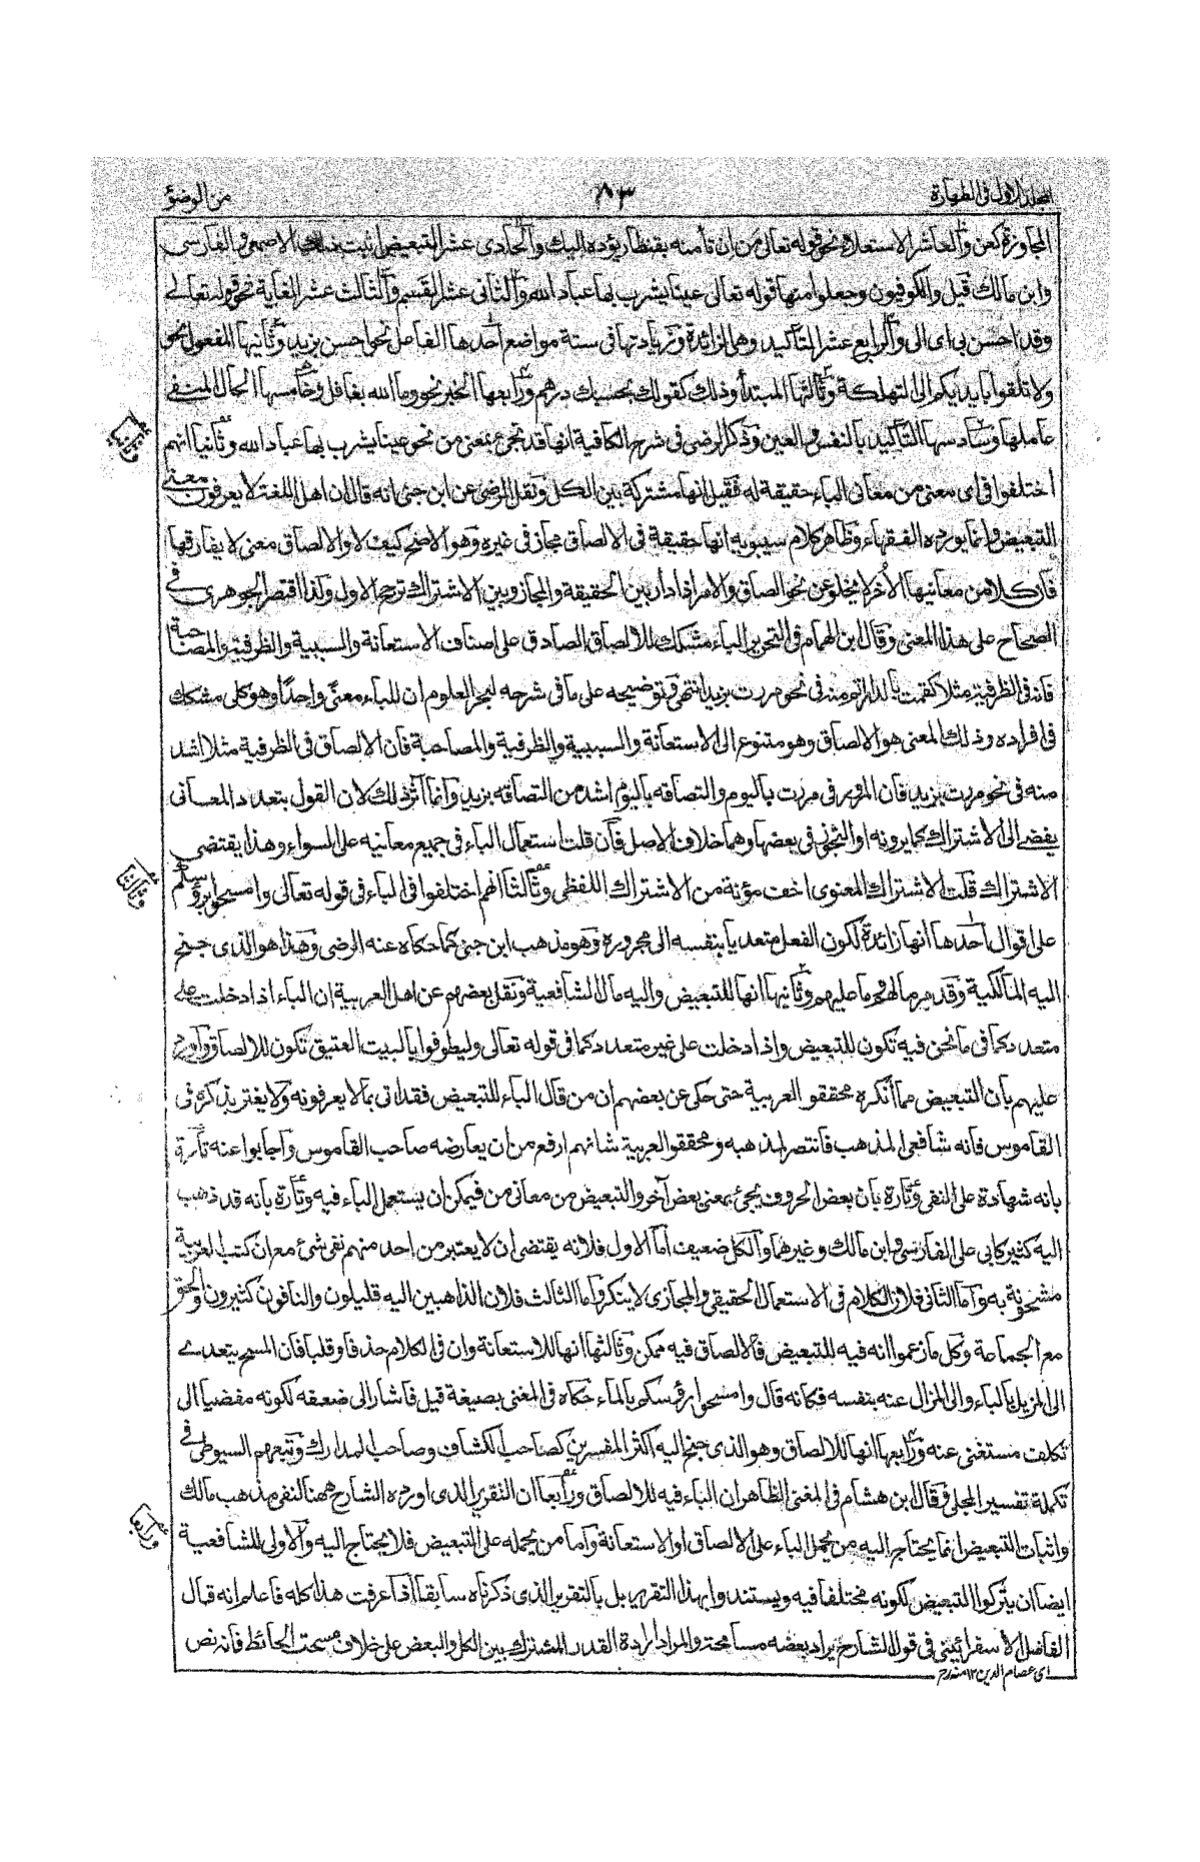 المجلد الاول فى الطهارة
٨٣
من الوضؤ
المجاوزة كعن والعاشر الاستعلاء نحو قوله تعالى من ان تأمنه بقنطار يؤده اليك والحادى عشر التبعيض اثبت ذلك الاصمعى والفارسى
وابن مالك قيل والكوفيون وجعلوا منها قوله تعالى عينا يشرب بها عباد الله والثانى عشر القسم والثالث عشر الغاية نحو قوله تعالى
وقد احسن بى اى الى والرابع عشر التاكيد وهى الزائدة وزيادتها فى ستة مواضع احدها الفاعل نحو احسن بزيد وثانيها المفعول نحو
ولا تلقوا بايديكم الى التهلكة وثالثها المبتدأ وذلك كقولك بحسبك درهم ورابعها الخبر نحو وما الله بغافل وخامسها الحال المنفى
عاملها وسادسها التأكيد بالنفس والعين وذكر الرضى فى شرح الكافية انها قد تجئ بمعنى من نحو عينا يشرب بها عباد الله وثانيا انهم
وثانيا
اختلفوا فى اى معنى من معانى الباء حقيقة له فقيل انها مشتركة بين الكل ونقل الرضى عن ابن جنى انه قال ان اهل اللغة لا يعرفون معنى
التبعيض وانما يورده الفقهاء وظاهر كلام سيبويه انها حقيقة فى الالصاق مجاز فى غيره وهو الاصح كيف لا والالصاق معنى لا يفارقها
فان كلا من معانيها الأخر لا يخلو عن نحو الصاق والامر اذا دار بين الحقيقة والمجاز وبين الاشتراك ترجح الاول ولذا اقتصر الجوهرى فى
الصحاح على هذا المعنى وقال ابن الهمام فى التحرير الباء مشكك للالصاق الصادق على اصناف الاستعانة والسببية والظرفية والمصاحبة
فانه فى الظرفية مثلا كقمت بالدار اتم منه فى نحو مررت بزيد انتهى وتوضيحه على ما فى شرحه لبحر العلوم ان للباء معنى واحدا وهو كلى مشكك
فى افراده وذلك المعنى هو الالصاق وهو متنوع الى الاستعانة والسببية والظرفية والمصاحبة فان الالصاق فى الظرفية مثلا اشد
منه فى نحو مررت بزيد فان المرور فى مررت باليوم والتصاقه باليوم اشد من التصاقه بزيد وانما آثر ذلك لان القول بتعدد المعانى
يفضى الى الاشتراك كما يرونه او التجوز فى بعضها وهما خلاف الاصل فان قلت استعمال الباء فى جميع معانيه على السواء وهذا يقتضى
الاشتراك قلت الاشتراك المعنوى اخف مؤنة من الاشتراك اللفظى وثالثا انهم اختلفوا فى الباء فى قوله تعالى وامسحوا برؤسكم
وثالثا
على اقوال احدها انها زائدة لكون الفعل متعديا بنفسه الى مجروره وهو مذهب ابن جنى كما حكاه عنه الرضى وهذا هو الذى جنح
اليه المالكية وقد مر ما لهم وما عليهم وثانيها انها للتبعيض واليه مال الشافعية ونقل بعضهم عن اهل العربية ان الباء اذا دخلت على
متعدد كما فى ما نحن فيه تكون للتبعيض واذا دخلت على غير متعدد كما فى قوله تعالى وليطوفوا بالبيت العتيق تكون للالصاق واورد
عليهم بان التبعيض مما أنكره محققو العربية حتى حكى عن بعضهم ان من قال الباء للتبعيض فقد اتى بما لا يعرفونه ولا يغتر بذكره فى
القاموس فانه شافعى المذهب فانتصر لمذهبه ومحققو العربية شانهم ارفع من ان يعارضه صاحب القاموس واجابوا عنه تارة
بانه شهادة على النفى وتارة بان بعض الحروف يجئ بمعنى بعض آخر والتبعيض من معانى من فيمكن ان يستعمل الباء فيه وتارة بانه قد ذهب
اليه كثير كابى على الفارسى وابن مالك وغيرهما والكل ضعيف اما الاول فلانه يقتضى ان لا يعتبر من احد منهم نفى شئ مع ان كتب العربية
مشحونة به واما الثانى فلان الكلام فى الاستعمال الحقيقى والمجازى لا ينكر واما الثالث فلان الذاهبين اليه قليلون والنافون كثيرون والحق
مع الجماعة وكل ما زعموا انه فيه للتبعيض فالالصاق فيه ممكن وثالثها انها للاستعانة وان فى الكلام حذفا وقلبا فان المسح يتعدى
الى المزيل بالباء والى المزال عنه بنفسه فكانه قال وامسحوا رؤسكم بالماء حكاه فى المغنى بصيغة قيل فاشار الى ضعفه لكونه مفضيا الى
تكلف مستغنى عنه ورابعها انها للالصاق وهو الذى جنح اليه اكثر المفسرين كصاحب الكشاف وصاحب المدارك وتبعهم السيوطى فى
تكملة تفسير المحلى وقال ابن هشام فى المغنى الظاهر ان الباء فيه للالصاق ورابعا ان التقرير الذى اورده الشارح ههنا لنفى مذهب مالك
ورابعا
واثبات التبعيض انما يحتاج اليه من يحمل الباء على الالصاق او الاستعانة واما من يحمله على التبعيض فلا يحتاج اليه والاولى للشافعية
ايضا ان يتركوا التبعيض لكونه مختلفا فيه ويستندوا بهذا التقرير بل بالتقرير الذى ذكرناه سابقا اذا عرفت هذا كله فاعلم انه قال
الفاضل الاسفرائينى فى قول الشارح يراد بعضه مسامحة والمراد ارادة القدر المشترك بين الكل والبعض على خلاف مسحت الحائط فانه نص
اى عصام الدين ١٢ منه رح